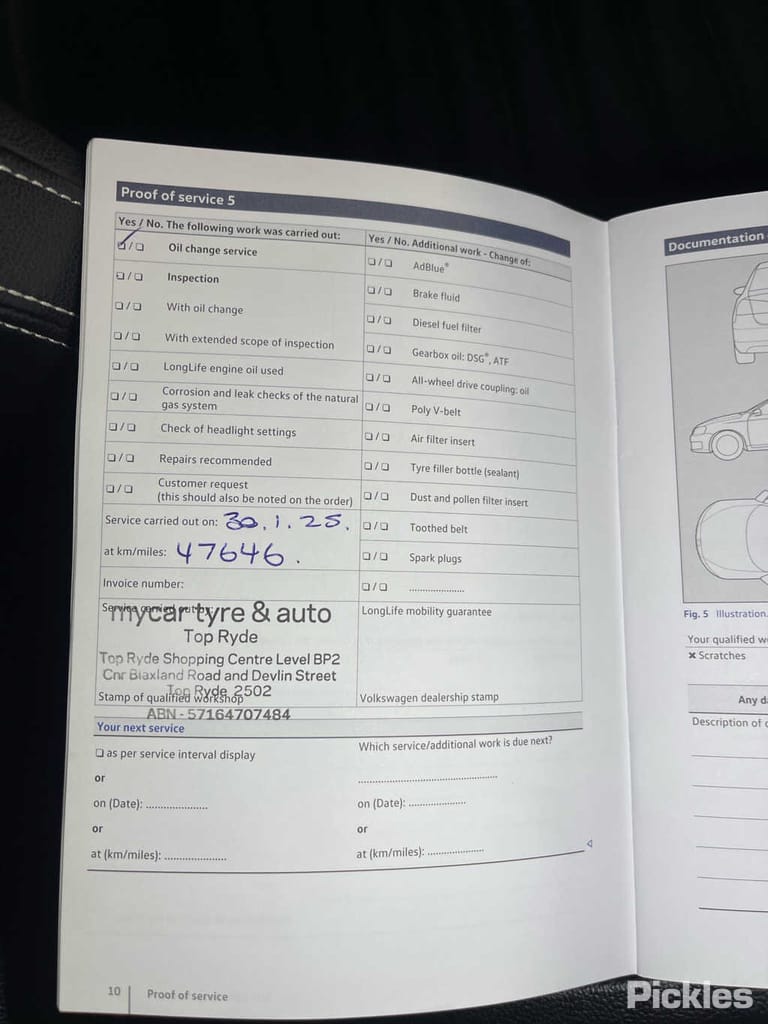 Proof of service 5
Yes / No. The following work was carried out:
☑/❏ Oil change service
❏/❏ Inspection
❏/❏ With oil change
❏/❏ With extended scope of inspection
❏/❏ LongLife engine oil used
❏/❏ Corrosion and leak checks of the natural
gas system
❏/❏ Check of headlight settings
❏/❏ Repairs recommended
❏/❏ Customer request
(this should also be noted on the order)
Service carried out on: 30.1.25.
at km/miles: 47646.
Invoice number:
Service carried out by:
mycar tyre & auto
Top Ryde
Top Ryde Shopping Centre Level BP2
Cnr Blaxland Road and Devlin Street
Top Ryde 2502
Stamp of qualified workshop
ABN - 57164707484
Yes / No. Additional work - Change of:
❏/❏ AdBlue®
❏/❏ Brake fluid
❏/❏ Diesel fuel filter
❏/❏ Gearbox oil: DSG®, ATF
❏/❏ All-wheel drive coupling: oil
❏/❏ Poly V-belt
❏/❏ Air filter insert
❏/❏ Tyre filler bottle (sealant)
❏/❏ Dust and pollen filter insert
❏/❏ Toothed belt
❏/❏ Spark plugs
❏/❏ .....................
LongLife mobility guarantee
Volkswagen dealership stamp
Your next service
❏ as per service interval display
or
on (Date): .....................
or
at (km/miles): .....................
Which service/additional work is due next?
...............................................
on (Date): ...................
or
at (km/miles): ...................
10 Proof of service
Documentation
Fig. 5 Illustration.
Your qualified w
✖ Scratches
Any d
Description of
Pickles